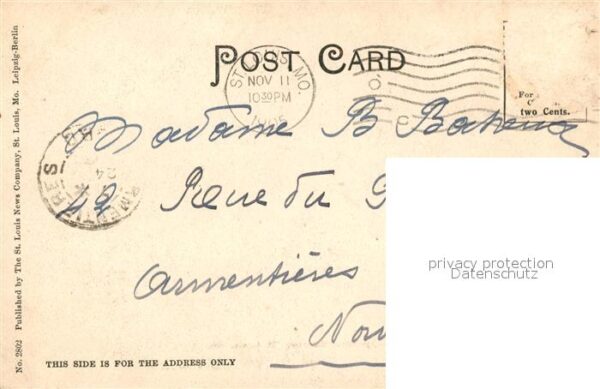 POST CARD
ST. LOUIS, MO.
NOV 11
10 30 PM
For
two Cents.
Madame B
42 Rue du
Armentières
privacy protection
Datenschutz
THIS SIDE IS FOR THE ADDRESS ONLY
No. 2802 Published by The St. Louis News Company, St. Louis, Mo. Leipzig-Berlin